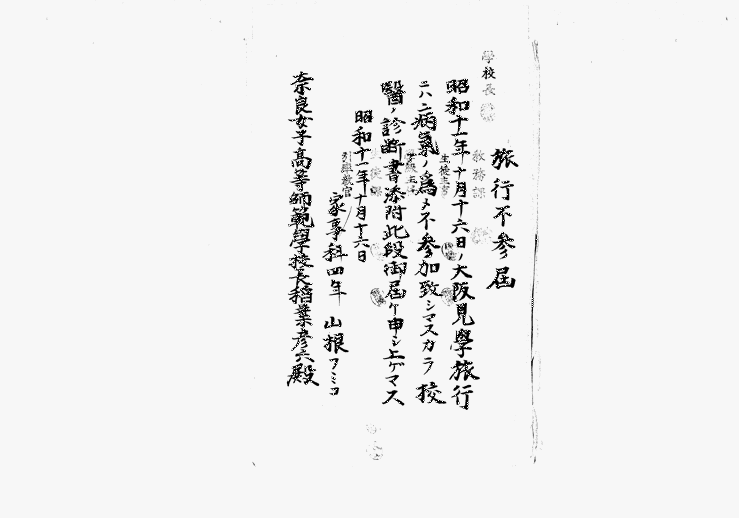 學校長
旅行不参届
教務課
昭和十一年十月十六日ノ大阪見學旅行
ニハ二病氣ノ爲メ不参加致シマスカラ校
醫ノ診断書添附此段御届ケ申シ上ゲマス
昭和十一年十月十六日
引率教官
家事科四年 山根フミコ
奈良女子高等師範學校長稻葉彦六殿